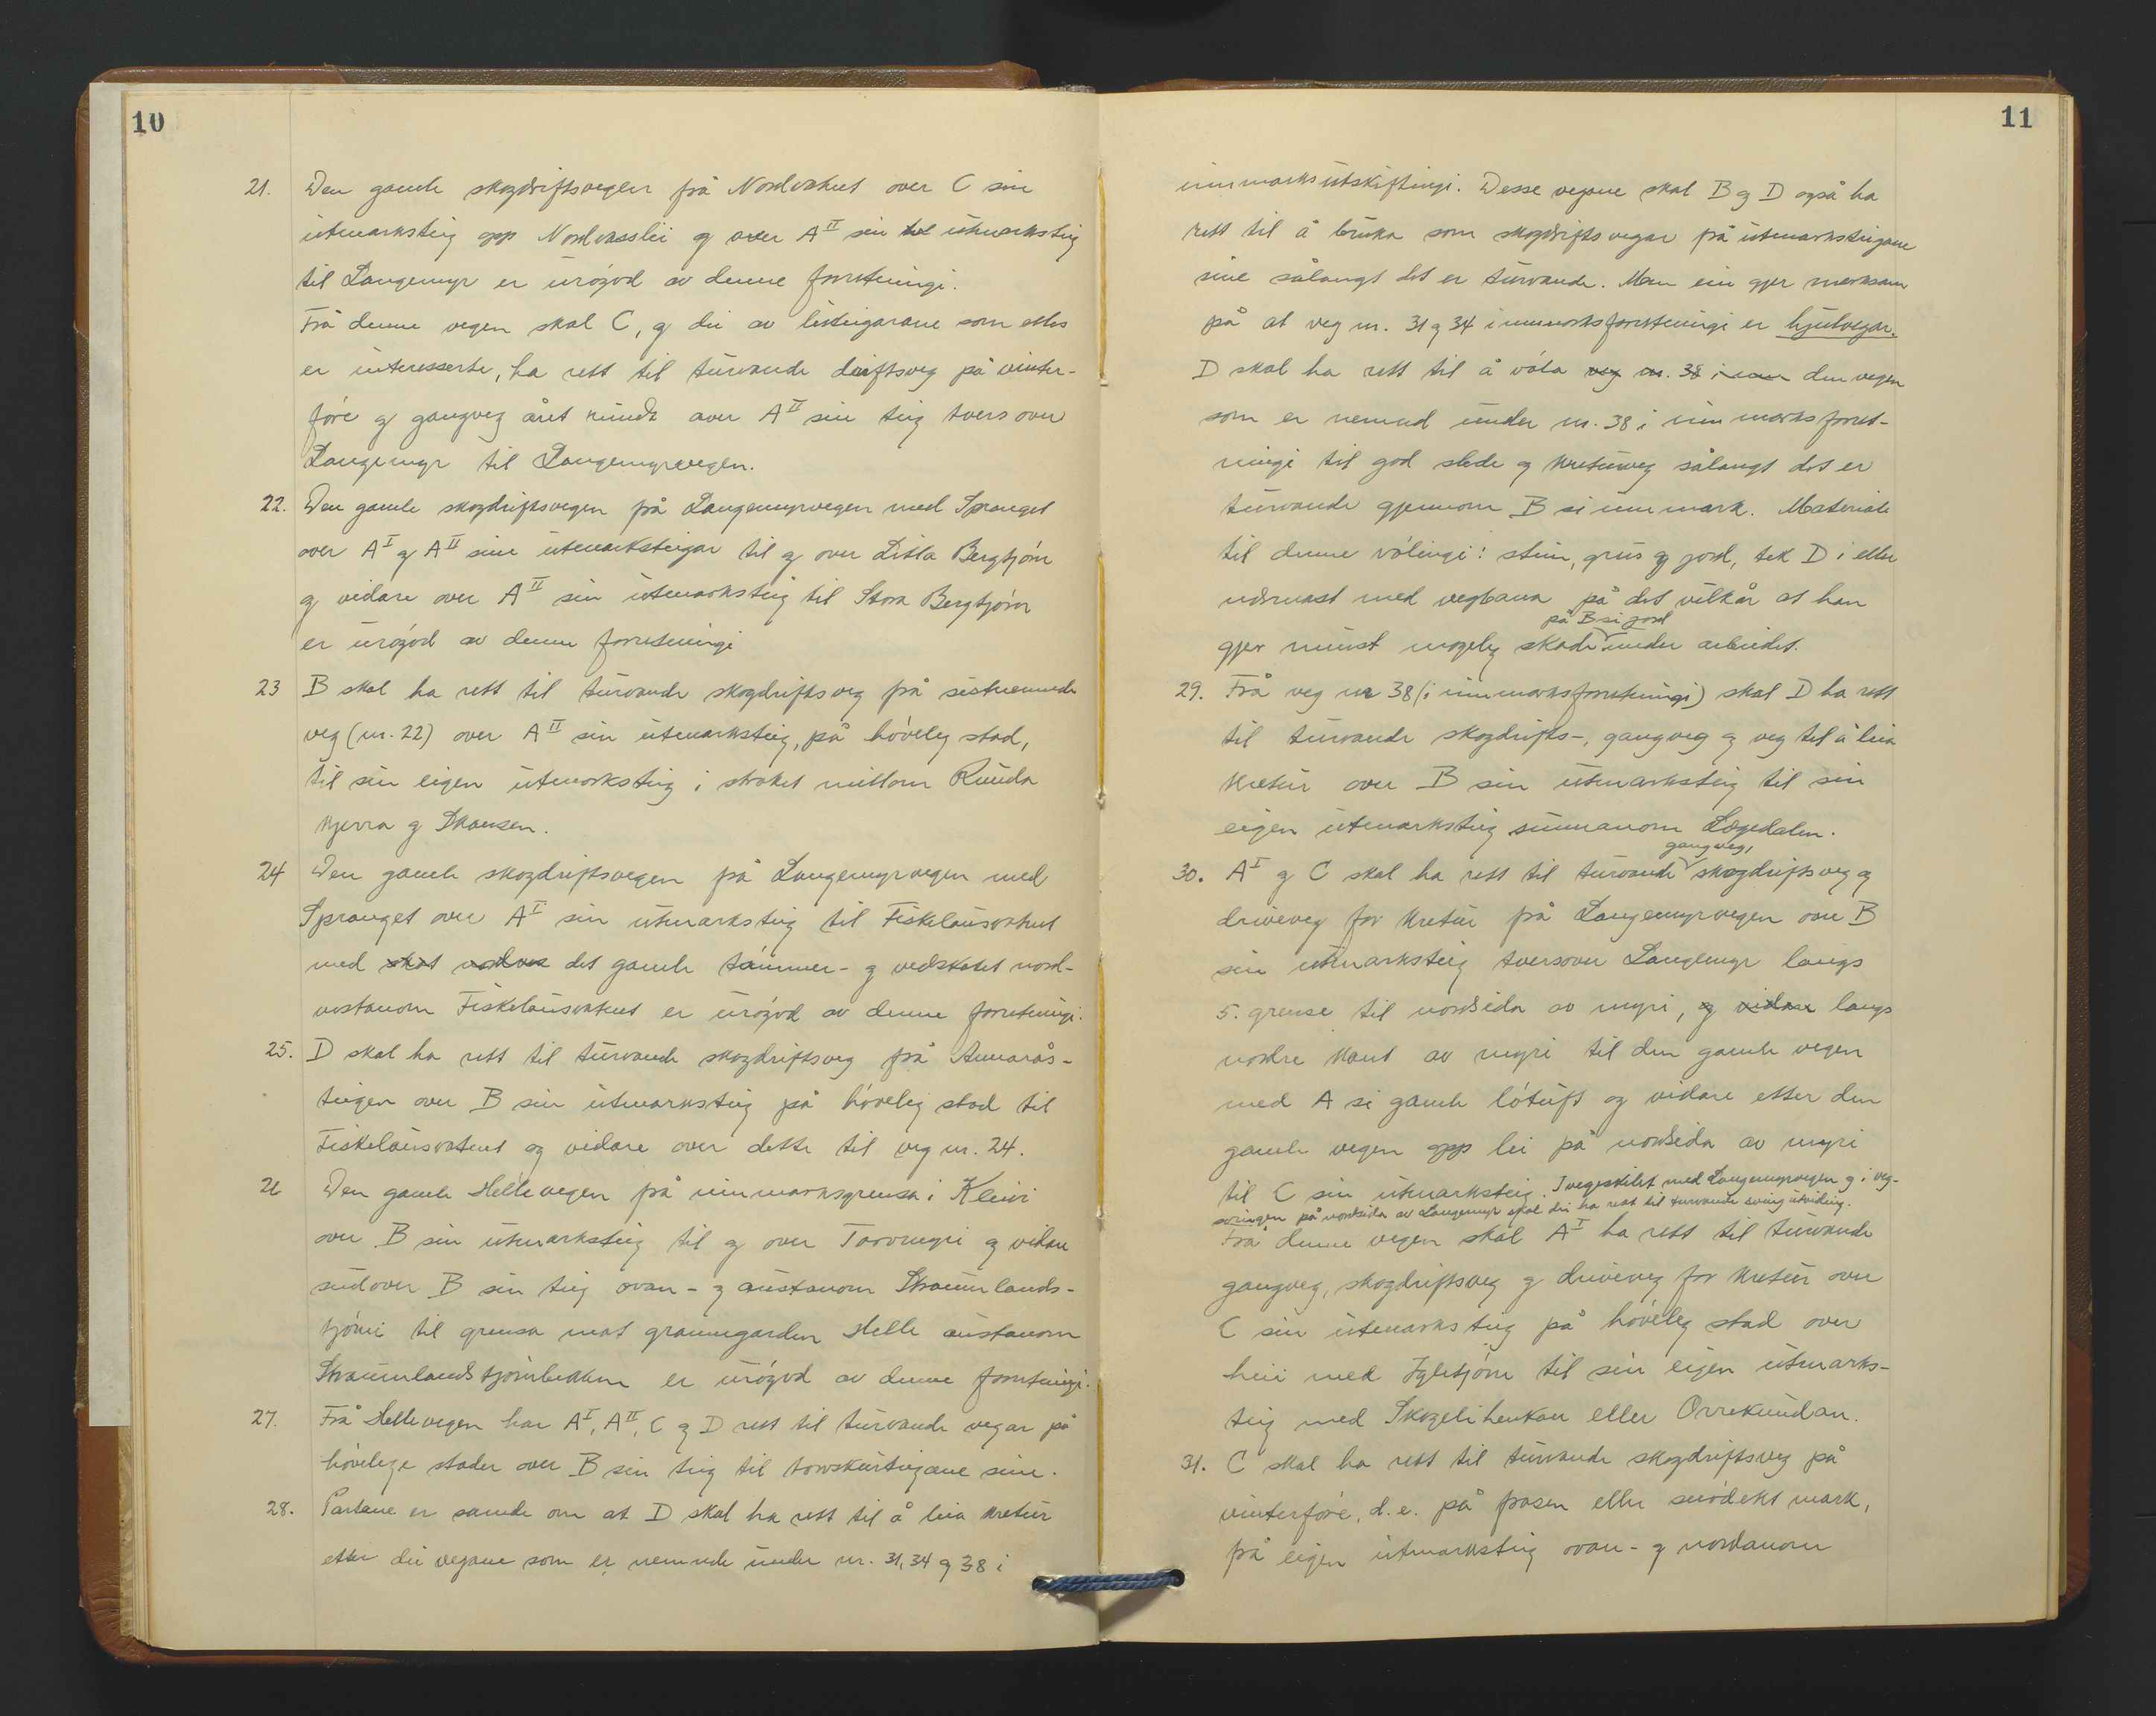 10
21. Den gamle skogdriftsvegen frå Nordvatnet over C sin
utmarksteig opp Nordvasslii og over A II sin til utmarksteig
til Langemyr er urógod av denne forretningi.
Frå denne vegen skal C, og dei av listeigarane som elles
er interesserte, ha rett til turvande driftsveg på vinter-
fóre og gangveg året rundt over A II sin teig tvers over
Langemyr til Langemyrvegen.
22. Den gamle skogdriftsvegen frå Langemyrvegen med Spranget
over A I og A II sine utmarksteigar til og over Litla Bergtjónn
og vidare over A II sin utmarksteig til Stora Bergtjónn
er urógod av denne forretningi
23 B skal ha rett til turvande skogdriftsveg frå sistnemnde
veg (nr. 22) over A II sin utmarksteig, på hóveleg stad,
til sin eigen utmarksteig i stroket millom Runda
kjerra og Skansen.
24 Den gamle skogdriftsvegen frå Langemyrvegen med
Spranget over A I sin utmarksteig til Fiskelausvatnet
med skat nordves det gamle tómmer- og vedskotet nord-
vestanom Fiskelausvatnet er urógod av denne forretningi.
25. D skal ha rett til turvande skogdriftsveg frå Annarås-
teigen over B sin utmarksteig på hóveleg stad til
Fiskelausvatnet og vidare over dette til veg nr. 24.
26 Den gamle Hellevegen frå innmarksgrensa i Kleivi
over B sin utmarksteig til og over Torvmyri og vidare
sudover B sin teig ovan- og austanom Straumlands-
tjónni til grensa mot granngarden Helle austanom
Straumlandstjónnbekken er urógod av denne forretningi.
27. Frå Hellevegen har A I, A II, C og D rett til turvande vegar på
hóvelege stader over B sin teig til torvskurteigane sine.
28. Partane er samde om at D skal ha rett til å leia kretur
etter dei vegane som er nemnde under nr. 31, 34 og 38 i
11
innmarksutskiftingi. Desse vegane skal B og D også ha
rett til å bruka som skogdriftsvegar frå utmarksteigane
sine sålangt det er turvande. Men ein gjer merksam
på at veg nr. 31 og 34 i innmarksforretningi er hjulvegar.
D skal ha rett til å vóla veg nr. 38 i inn den vegen
som er nemnd under nr. 38 i innmarksforret-
ningi til god slede og kreturveg sålangt det er
turvande gjennom B si innmark. Materiale
til denne vólingi: stein, grus og jord, tek D i eller
nærmast med vegbana på det vilkår at han
på B si jord
gjer minst mogeleg skade under arbeidet.
29. Frå veg nr 38 (i innmarksforretningi) skal D ha rett
til turvande skogdrifts-, gangveg og veg til å leia
kretur over B sin utmarksteig til sin
eigen utmarksteig sunnanom Lægedalen.
gangveg,
30. A I og C skal ha rett til turvande skogdriftsveg og
driveveg for kretur frå Langemyrvegen over B
sin utmarksteig tversover Langemyr langs
5. grense til nordsida av myri, og vidare langs
nordre kant av myri til den gamle vegen
med A si gamle lótuft og vidare etter den
gamle vegen opp lei på nordsida av myri
til C sin utmarksteig. I vegskilet med Langemyrvegen og i veg-
svingen på nordsida av Langemyr skal dei ha rett til turvande svingutviding.
Frå denne vegen skal A I ha rett til turvande
gangveg, skogdriftsveg og driveveg for kretur over
C sin utmarksteig på hóveleg stad over
heii med Igletjónn til sin eigen utmarks-
teig med Skogeliheukan eller Orrekundan.
31. C skal ha rett til turvande skogdriftsveg på
vinterfóre, d.e. på frosen eller snódekt mark,
frå eigen utmarksteig ovan- og nordanom